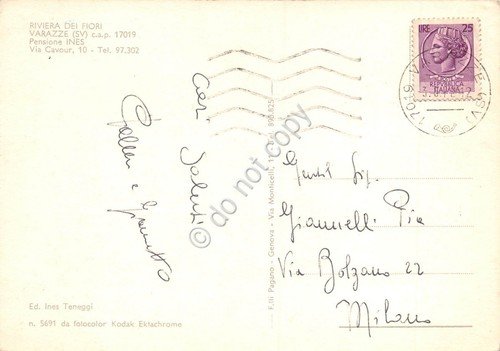 RIVIERA DEI FIORI
VARAZZE (SV) c.a.p. 17019
Pensione INES
Via Cavour, 10 - Tel. 97.302
LIRE 25
REPUBBLICA
ITALIANA
Cari Saluti
e Giannetto
F.lli Pagano - Genova - Via Monticelli, 11 - Tel. 890.825
do not copy
Gentil Sig.
Giannelli Pia
Via Bolzano 22
Milano
Ed. Ines Teneggi
n. 5691 da fotocolor Kodak Ektachrome